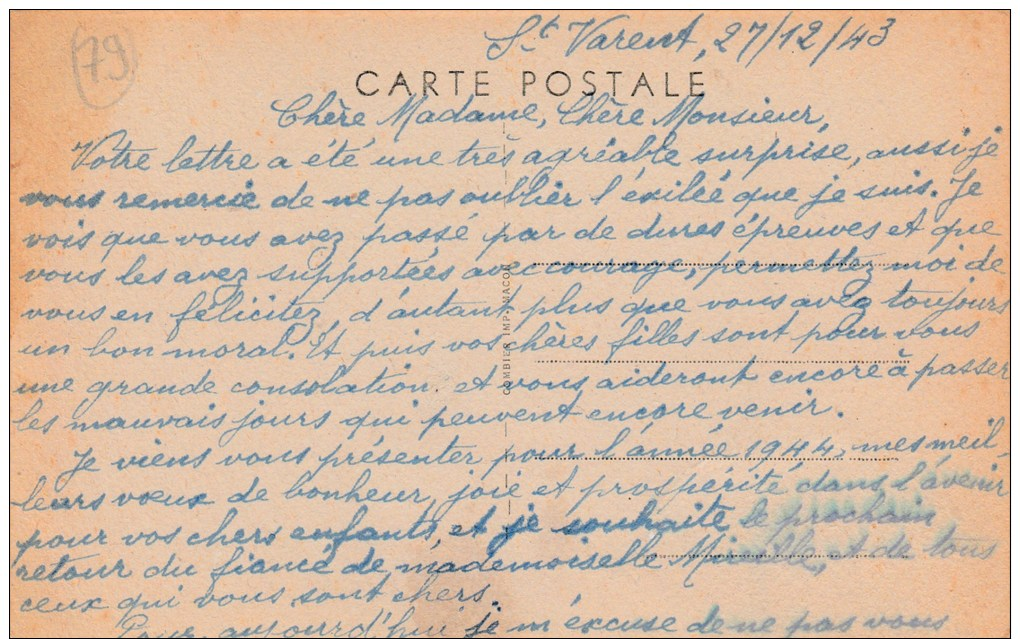 79
St Varent, 27/12/43
CARTE POSTALE
Chère Madame, Chère Monsieur,
Votre lettre a été une très agréable surprise, aussi je
vous remercie de ne pas oublier l'éxilée que je suis. Je
vois que vous avez passé par de dures épreuves et que
vous les avez supportées avec courage, permettez moi de
vous en féliciter, d'autant plus que vous avez toujours
un bon moral. Et puis vos chères filles sont pour vous
une grande consolation. et vous aideront encore à passer
les mauvais jours qui peuvent encore venir.
Je viens vous présenter pour l'année 1944, mes meil-
leurs vœux de bonheur, joie et prospérité dans l'avenir
pour vos chers enfants, et je souhaite le prochain
retour du fiancé de mademoiselle Mireille, et de tous
ceux qui vous sont chers.
Pour aujourd'hui je m'éxcuse de ne pas vous
COMBIER IMP. MACON